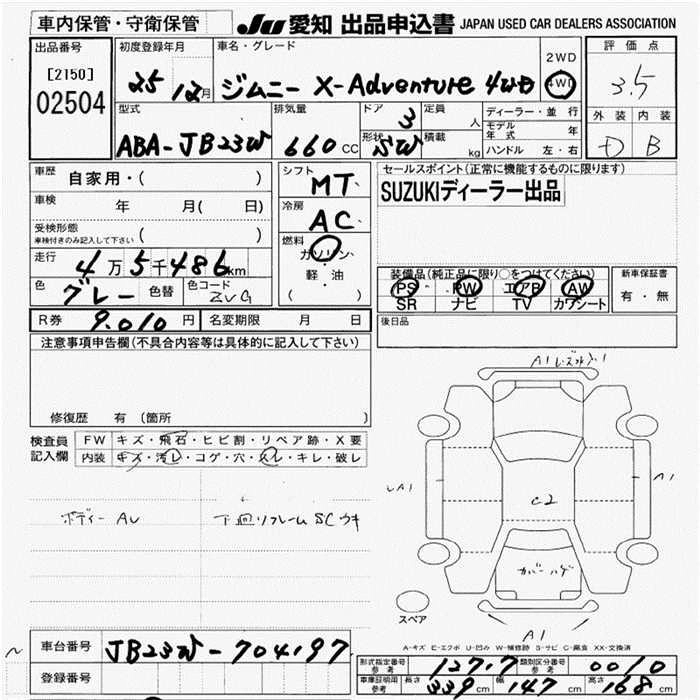 車内保管・守衛保管
JU 愛知 出品申込書 JAPAN USED CAR DEALERS ASSOCIATION
出品番号
[2150]
02504
初度登録年月
25 12月
車名・グレード
ジムニー X-Adventure 4WD
2WD
4WD
評価点
3.5
外装 内装
D B
型式
ABA-JB23W
排気量
660 CC
ドア 3
形状 SW
定員 人
積載 kg
ディーラー・並行
モデル年式 年
ハンドル 左・右
車歴
自家用・( )
車検 年 月( 日)
受検形態
車検付きのみ記入して下さい ( )
走行
4万5千486km
色
グレー
色替
色コード
ZVG
R券 9.010円
名変期限 月 日
シフト
MT
冷房
AC
燃料
ガソリン
・
軽・油
( )
セールスポイント(正常に機能するものに限ります)
SUZUKIディーラー出品
装備品(純正品に限り○をつけてください)
PS PW エアB AW
SR ナビ TV カワシート
新車保証書
有・無
後日品
注意事項申告欄(不具合内容等は具体的に記入して下さい)
修復歴 有(箇所 )
検査員
記入欄
FW キズ・飛石・ヒビ割・リペア跡・X要
内装 キズ・汚レ・コゲ・穴・スレ・キレ・破レ
ボディー AU
下廻リフレーム SC ウキ
A1
A1
A1
C2
カバーハゲ
A1
スペア
A-キズ E-エクボ U-凹み W-補修跡 S-サビ C-腐食 XX-交換済
車台番号 JB23W-704197
登録番号
形式指定番号
参考
12717
類別区分番号
参考
0010
車庫証明用
参考
長さ 339cm 幅 147cm 高さ 168cm